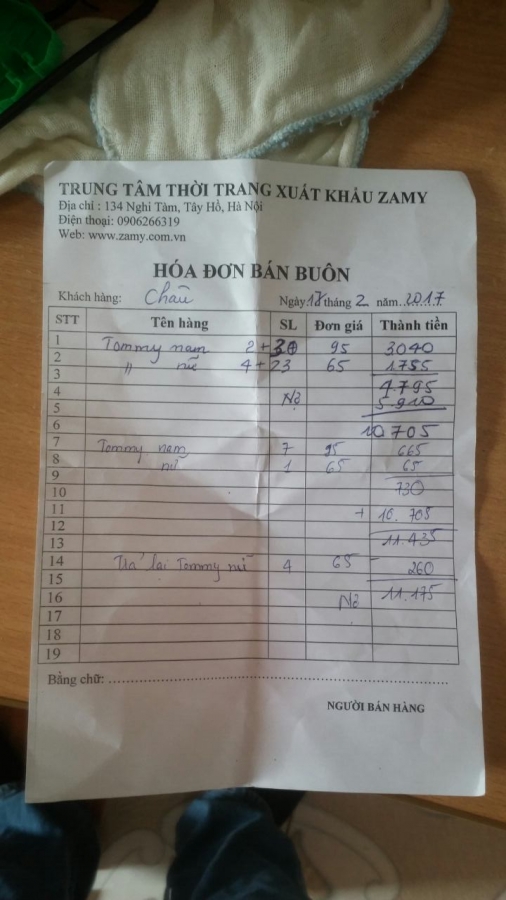 TRUNG TÂM THỜI TRANG XUẤT KHẨU ZAMY
Địa chỉ : 134 Nghi Tàm, Tây Hồ, Hà Nội
Điện thoại: 0906266319
Web: www.zamy.com.vn
HÓA ĐƠN BÁN BUÔN
Khách hàng: Châu Ngày 18 tháng 2 năm 2017
STT Tên hàng SL Đơn giá Thành tiền
1 Tommy nam 2 + 30 95 3040
2 " nữ 4 + 23 65 1755
3
4 Nợ 4.795
5 5.910
6 10705
7 Tommy nam 7 95 665
8 nữ 1 65 65
9
10 730
11 + 10.705
12
13 11.435
14 Trả lại Tommy nữ 4 65 - 260
15
16 Nợ 11.175
17
18
19
Bằng chữ:
NGƯỜI BÁN HÀNG